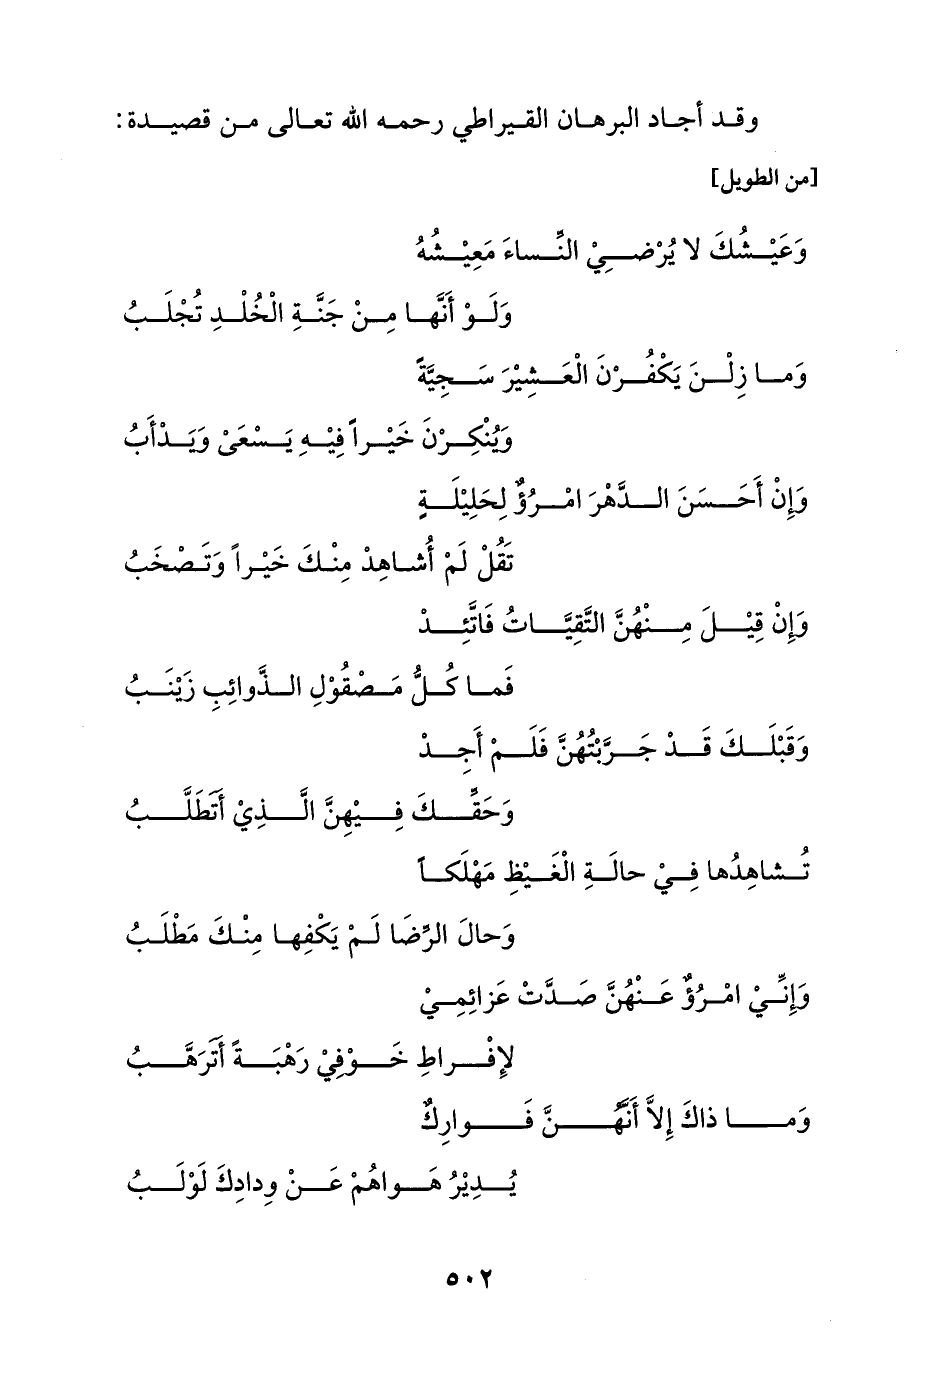 وقد أجاد البرهان القيراطي رحمه الله تعالى من قصيدة:
[من الطويل]
وَعَيْشُكَ لا يُرْضِيْ النِّساءَ مَعِيْشُهُ
وَلَوْ أَنَّها مِنْ جَنَّةِ الْخُلْدِ تُجْلَبُ
وَما زِلْنَ يَكْفُرْنَ الْعَشِيْرَ سَجِيَّةً
وَيُنْكِرْنَ خَيْراً فِيْهِ يَسْعَىْ وَيَدْأَبُ
وَإِنْ أَحَسَنَ الدَّهْرَ امْرُؤٌ لِحَلِيْلَةٍ
تَقُلْ لَمْ أُشاهِدْ مِنْكَ خَيْراً وَتَصْخَبُ
وَإِنْ قِيْلَ مِنْهُنَّ التَّقِيَّاتُ فَاتَّئِدْ
فَما كُلُّ مَصْقُوْلِ الذَّوائِبِ زَيْنَبُ
وَقَبْلَكَ قَدْ جَرَّبْتُهُنَّ فَلَمْ أَجِدْ
وَحَقِّكَ فِيْهِنَّ الَّذِيْ أَتَطَلَّبُ
تُشاهِدُها فِيْ حالَةِ الْغَيْظِ مَهْلَكاً
وَحالَ الرِّضَا لَمْ يَكْفِها مِنْكَ مَطْلَبُ
وَإِنِّيْ امْرُؤٌ عَنْهُنَّ صَدَّتْ عَزائِمِيْ
لإِفْراطِ خَوْفِيْ رَهْبَةً أَتَرَهَّبُ
وَما ذاكَ إِلاَّ أَنَّهُنَّ فَوارِكٌ
يُدِيْرُ هَواهُمْ عَنْ وِدادِكَ لَوْلَبُ
٥٠٢